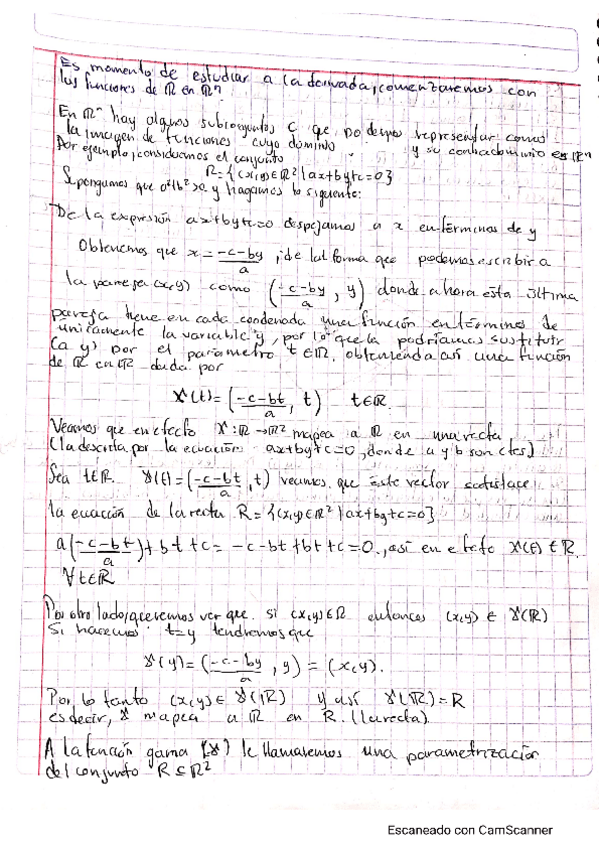 Es momento de estudiar a la derivada, comenzaremos con
las funciones de ℝ en ℝⁿ
En ℝⁿ hay algunos subconjuntos C que podemos representar como
la imagen de funciones cuyo dominio y su contradominio es ℝⁿ
Por ejemplo, consideramos el conjunto
R={(x,y)∈ℝ²|ax+by+c=0}
Supongamos que a²+b²>0 y hagamos lo siguiente:
De la expresión ax+by+c=0 despejamos a x en términos de y
Obtenemos que x = (-c-by)/a, de tal forma que podemos escribir a
la pareja (x,y) como ((-c-by)/a, y) donde ahora esta última
pareja tiene en cada coordenada una función en términos de
unicamente la variable y, por lo que la podríamos sustituir
(a y) por el parámetro t∈ℝ, obteniendo así una función
de ℝ en ℝ² dada por
γ(t) = ((-c-bt)/a, t) t∈ℝ.
Veamos que en efecto γ:ℝ→ℝ² mapea a ℝ en una recta
(la descrita por la ecuación ax+by+c=0, donde a y b son ctes)
Sea t∈ℝ. γ(t) = ((-c-bt)/a, t) veamos que este vector satisface
la ecuación de la recta R={(x,y)∈ℝ²|ax+by+c=0}
a((-c-bt)/a)+bt+c = -c-bt+bt+c=0, así en efecto γ(t)∈R
∀t∈ℝ
Por otro lado, queremos ver que si (x,y)∈R entonces (x,y) ∈ γ(ℝ)
Si hacemos t=y tendremos que
γ(y) = ((-c-by)/a, y) = (x,y).
Por lo tanto (x,y)∈ γ(ℝ) y así γ(ℝ)=R
es decir, γ mapea a ℝ en R. (la recta)
A la función gama (γ) le llamaremos una parametrización
del conjunto R⊆ℝ²
Escaneado con CamScanner